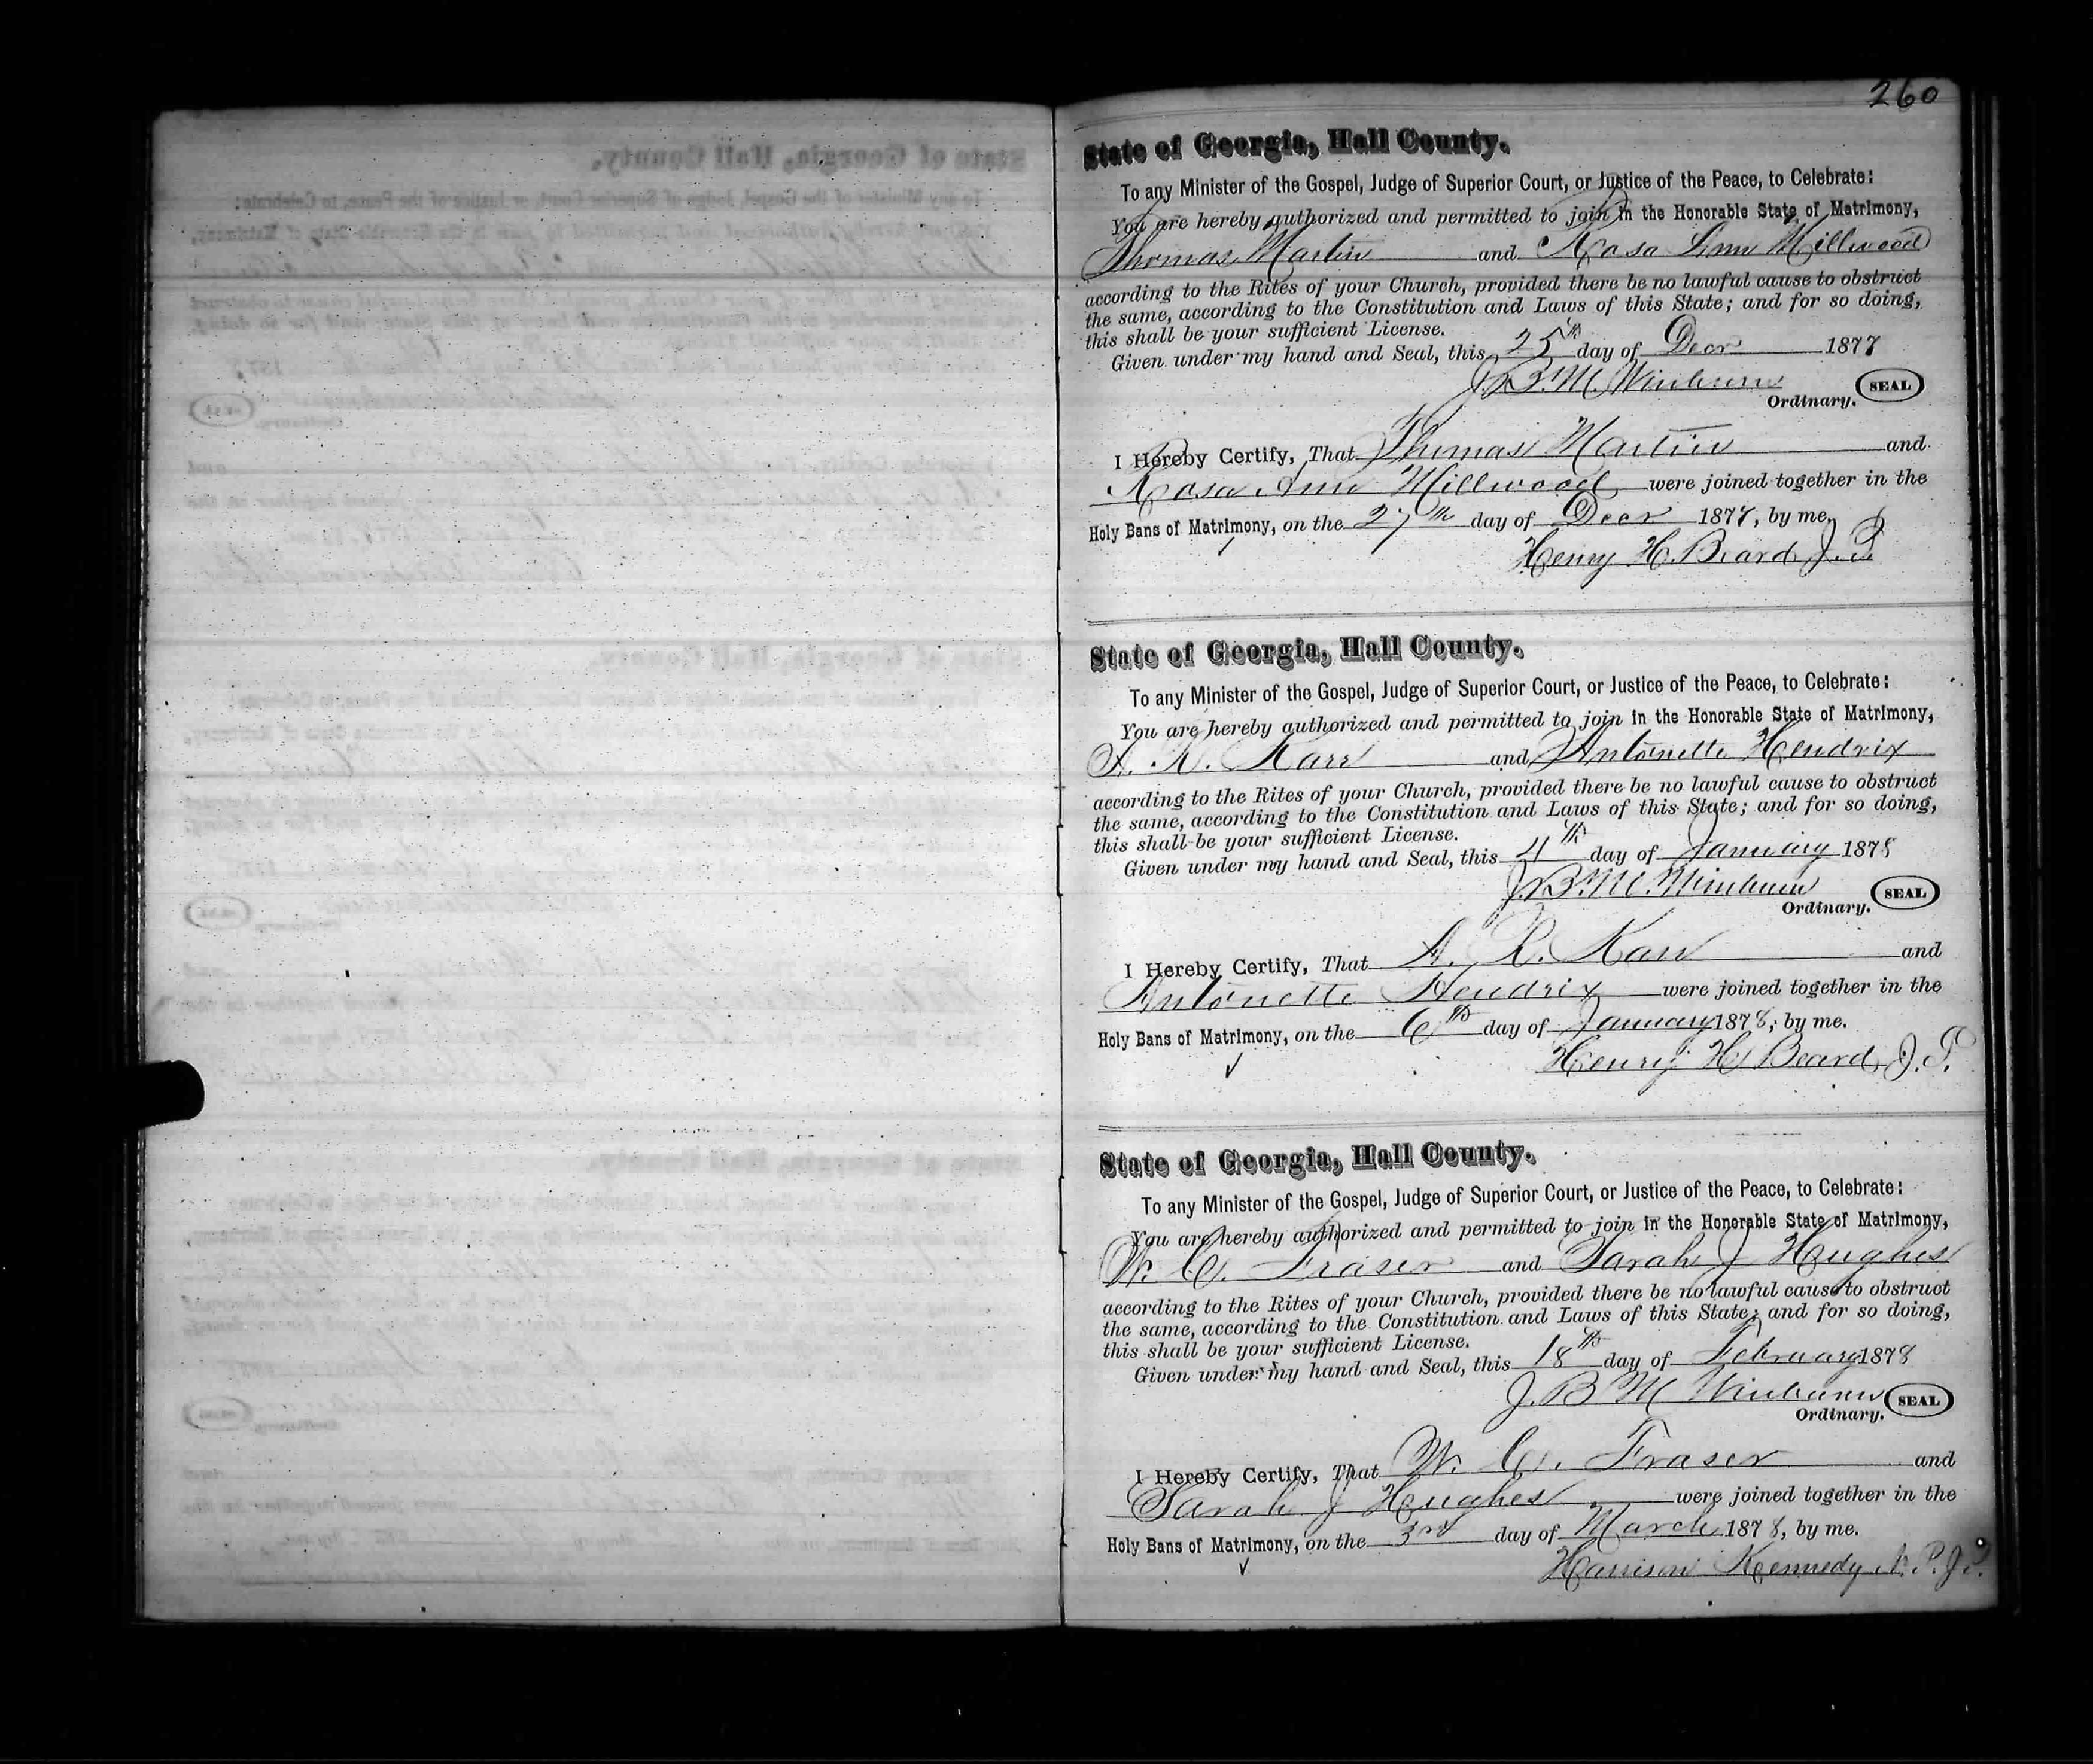 260
State of Georgia, Hall County.
To any Minister of the Gospel, Judge of Superior Court, or Justice of the Peace, to Celebrate:
You are hereby authorized and permitted to join in the Honorable State of Matrimony,
Thomas Martin and Rosa Ann Millwood
according to the Rites of your Church, provided there be no lawful cause to obstruct
the same, according to the Constitution and Laws of this State; and for so doing,
this shall be your sufficient License.
Given under my hand and Seal, this 25th day of Decr 1877
J.B.M. Winburn SEAL
Ordinary.
I Hereby Certify, That Thomas Martin and
Rosa Ann Millwood were joined together in the
Holy Bans of Matrimony, on the 27th day of Decr 1877, by me.
Henry H. Beard J.P.
State of Georgia, Hall County.
To any Minister of the Gospel, Judge of Superior Court, or Justice of the Peace, to Celebrate:
You are hereby authorized and permitted to join in the Honorable State of Matrimony,
A. R. Karr and Antoinette Hendrix
according to the Rites of your Church, provided there be no lawful cause to obstruct
the same, according to the Constitution and Laws of this State; and for so doing,
this shall be your sufficient License.
Given under my hand and Seal, this 4th day of January 1878
J.B.M. Winburn SEAL
Ordinary.
I Hereby Certify, That A. R. Karr and
Antoinette Hendrix were joined together in the
Holy Bans of Matrimony, on the 6th day of January 1878, by me.
Henry H. Beard, J.P.
State of Georgia, Hall County.
To any Minister of the Gospel, Judge of Superior Court, or Justice of the Peace, to Celebrate:
You are hereby authorized and permitted to join in the Honorable State of Matrimony,
W. C. Fraser and Sarah J Hughes
according to the Rites of your Church, provided there be no lawful cause to obstruct
the same, according to the Constitution and Laws of this State; and for so doing,
this shall be your sufficient License.
Given under my hand and Seal, this 18th day of February 1878
J. B M Winburn SEAL
Ordinary.
I Hereby Certify, That W. C. Fraser and
Sarah J Hughes were joined together in the
Holy Bans of Matrimony, on the 3rd day of March 1878, by me.
Harrison Kennedy N.P.J.P.